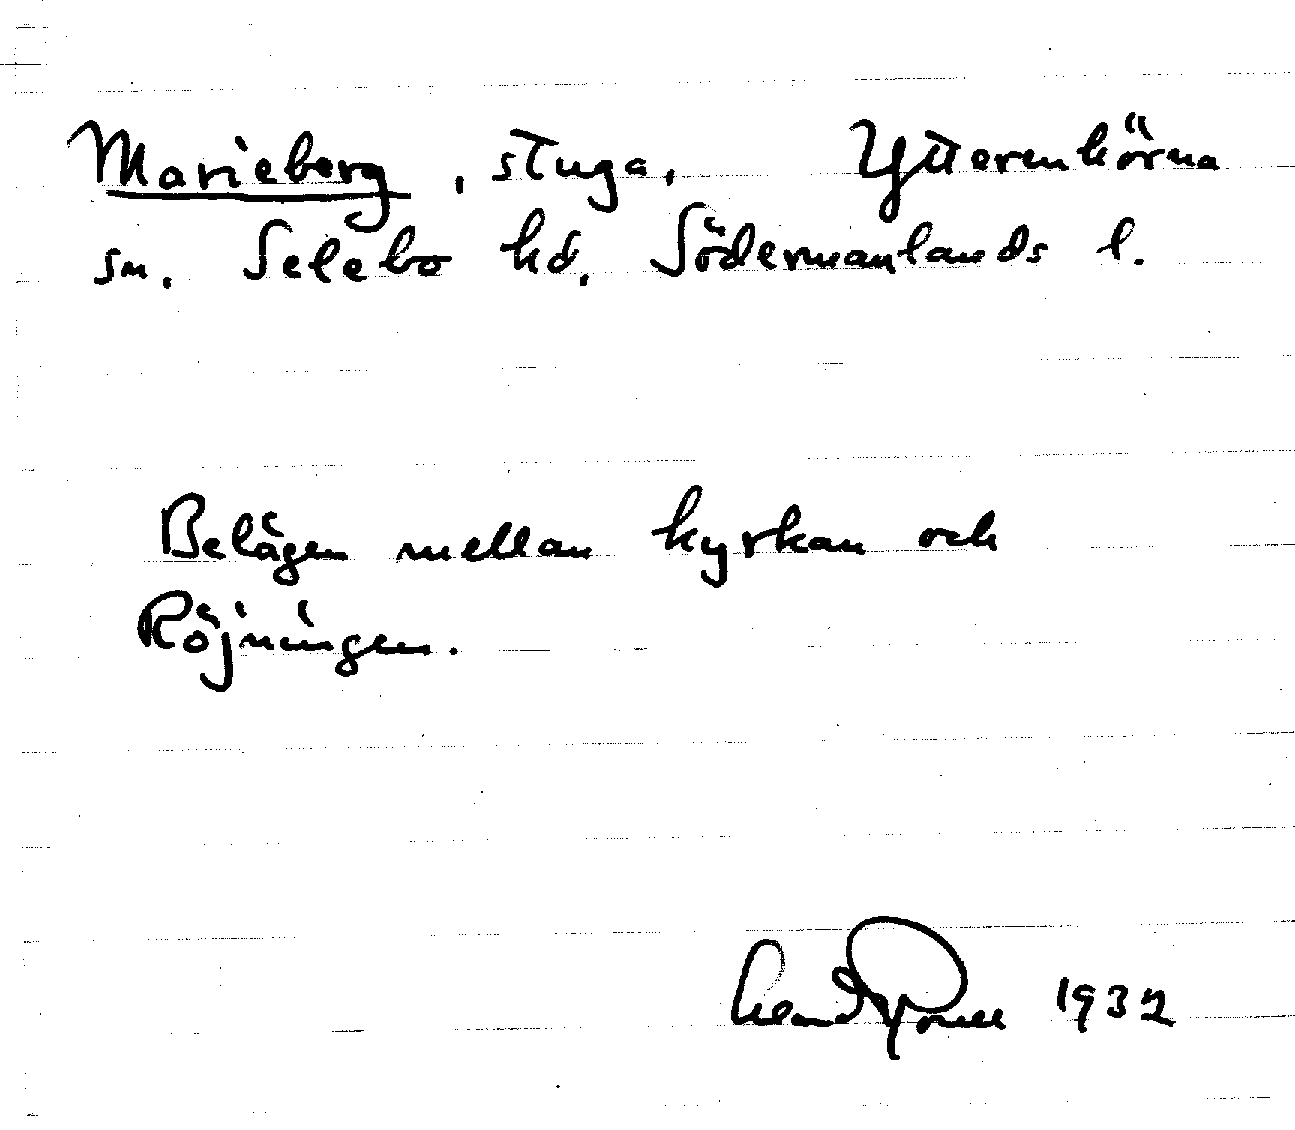 Marieberg, stuga, Ytterenhörna
sn. Selebo hd. Södermanlands l.
Belägen mellan kyrkan och
Röjningen.
1932